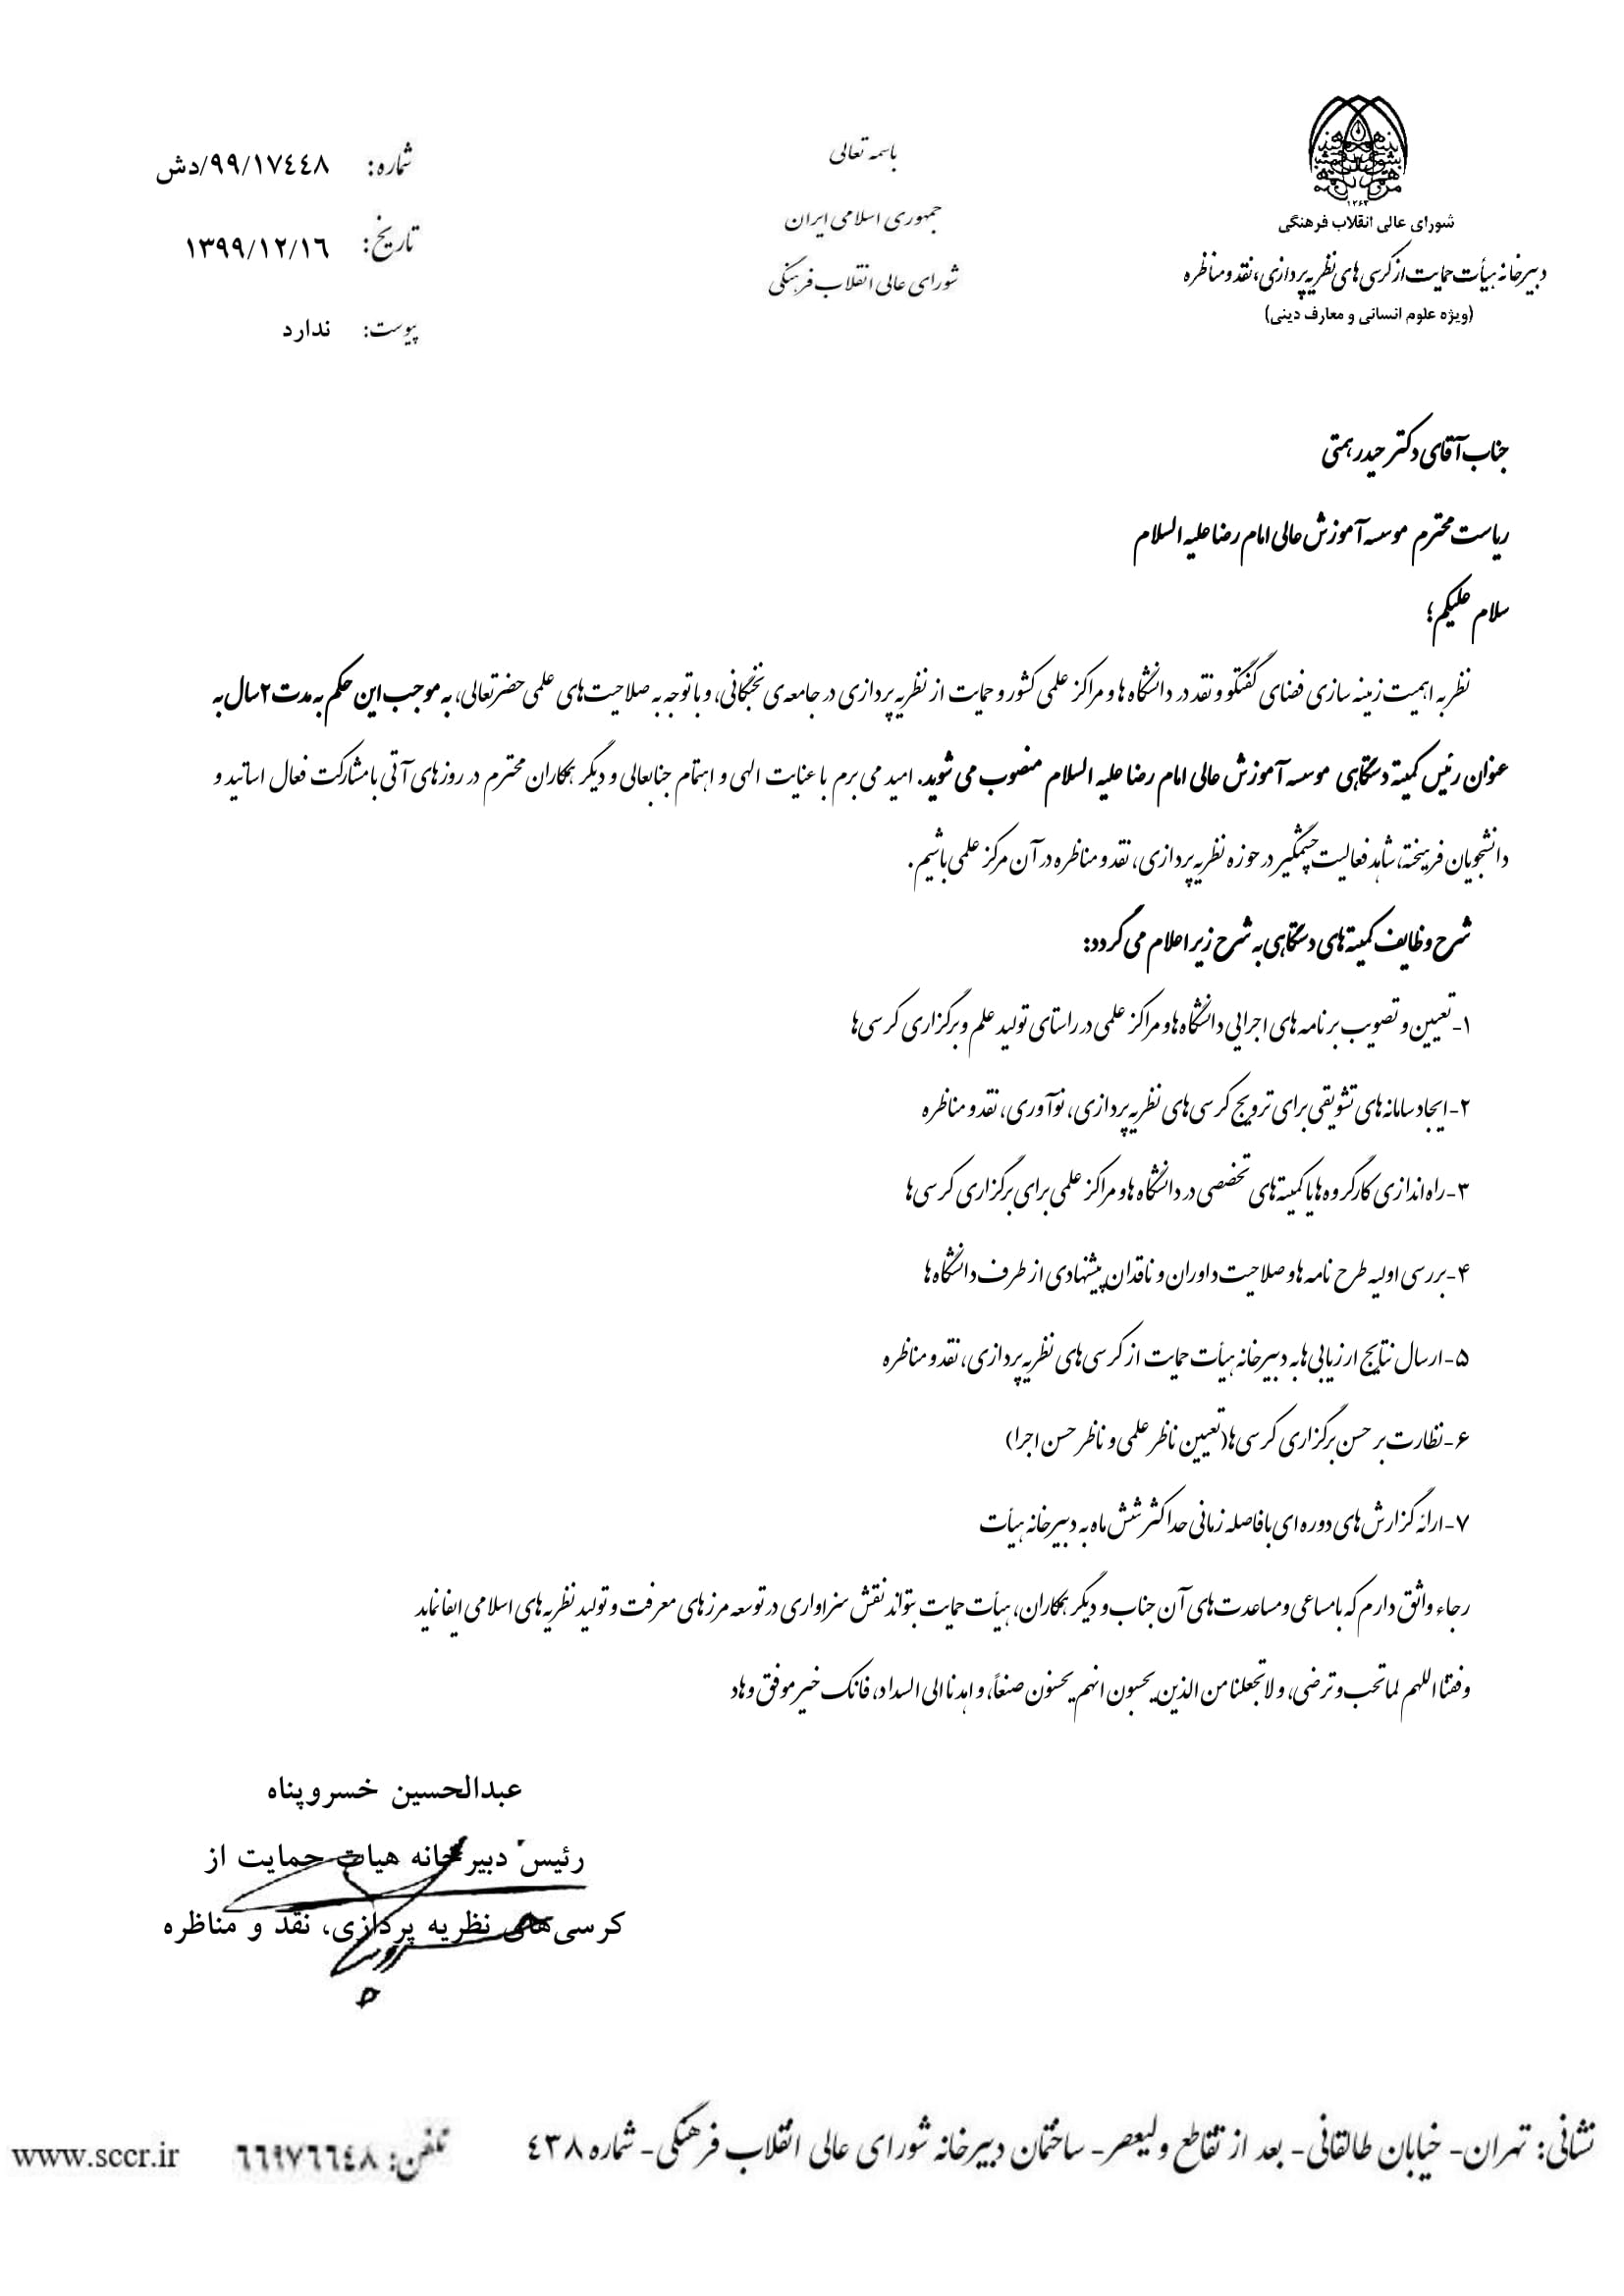 باسمه تعالی
جمهوری اسلامی ایران
شورای عالی انقلاب فرهنگی
۱۳۶۳
شورای عالی انقلاب فرهنگی
دبیرخانه هیأت حمایت از کرسی های نظریه پردازی، نقد و مناظره
(ویژه علوم انسانی و معارف دینی)
شماره: ۹۹/۱۷٤٤۸/دش
تاریخ: ۱۳۹۹/۱۲/۱٦
پیوست: ندارد
جناب آقای دکتر حیدر همتی
ریاست محترم موسسه آموزش عالی امام رضا علیه السلام
سلام علیکم؛
نظر به اهمیت زمینه سازی فضای گفتگو و نقد در دانشگاه ها و مراکز علمی کشور و حمایت از نظریه پردازی در جامعه ی نخبگانی، و با توجه به صلاحیت های علمی حضرتعالی، به موجب این حکم به مدت ۲ سال به
عنوان رئیس کمیته دستگاهی موسسه آموزش عالی امام رضا علیه السلام منصوب می شوید. امید می برم با عنایت الهی و اهتمام جنابعالی و دیگر همکاران محترم در روزهای آتی با مشارکت فعال اساتید و
دانشجویان فرهیخته، شاهد فعالیت چشمگیر در حوزه نظریه پردازی، نقد و مناظره در آن مرکز علمی باشیم.
شرح وظایف کمیته های دستگاهی به شرح زیر اعلام می گردد:
۱- تعیین و تصویب برنامه های اجرایی دانشگاه ها و مراکز علمی در راستای تولید علم و برگزاری کرسی ها
۲- ایجاد سامانه های تشویقی برای ترویج کرسی های نظریه پردازی، نوآوری، نقد و مناظره
۳- راه اندازی کارگروه ها یا کمیته های تخصصی در دانشگاه ها و مراکز علمی برای برگزاری کرسی ها
۴- بررسی اولیه طرح نامه ها و صلاحیت داوران و ناقدان پیشنهادی از طرف دانشگاه ها
۵- ارسال نتایج ارزیابی ها به دبیرخانه هیأت حمایت از کرسی های نظریه پردازی، نقد و مناظره
۶- نظارت بر حسن برگزاری کرسی ها (تعیین ناظر علمی و ناظر حسن اجرا)
۷- ارائه گزارش های دوره ای با فاصله زمانی حداکثر شش ماه به دبیرخانه هیأت
رجاء واثق دارم که با مساعی و مساعدت های آن جناب و دیگر همکاران، هیأت حمایت بتواند نقش سزاواری در توسعه مرزهای معرفت و تولید نظریه های اسلامی ایفا نماید
وفقنا اللهم لما تحب و ترضی، و لا تجعلنا من الذین یحسبون انهم یحسنون صنعاً، و اهدنا الی السداد، فانک خیر موفق و هاد
عبدالحسین خسروپناه
رئیس دبیرخانه هیات حمایت از
کرسی‌های نظریه پردازی، نقد و مناظره
نشانی: تهران- خیابان طالقانی- بعد از تقاطع ولیعصر- ساختمان دبیرخانه شورای عالی انقلاب فرهنگی- شماره ٤۳۸
تلفن: ٦٦۹۷٦٦٤۸
www.sccr.ir